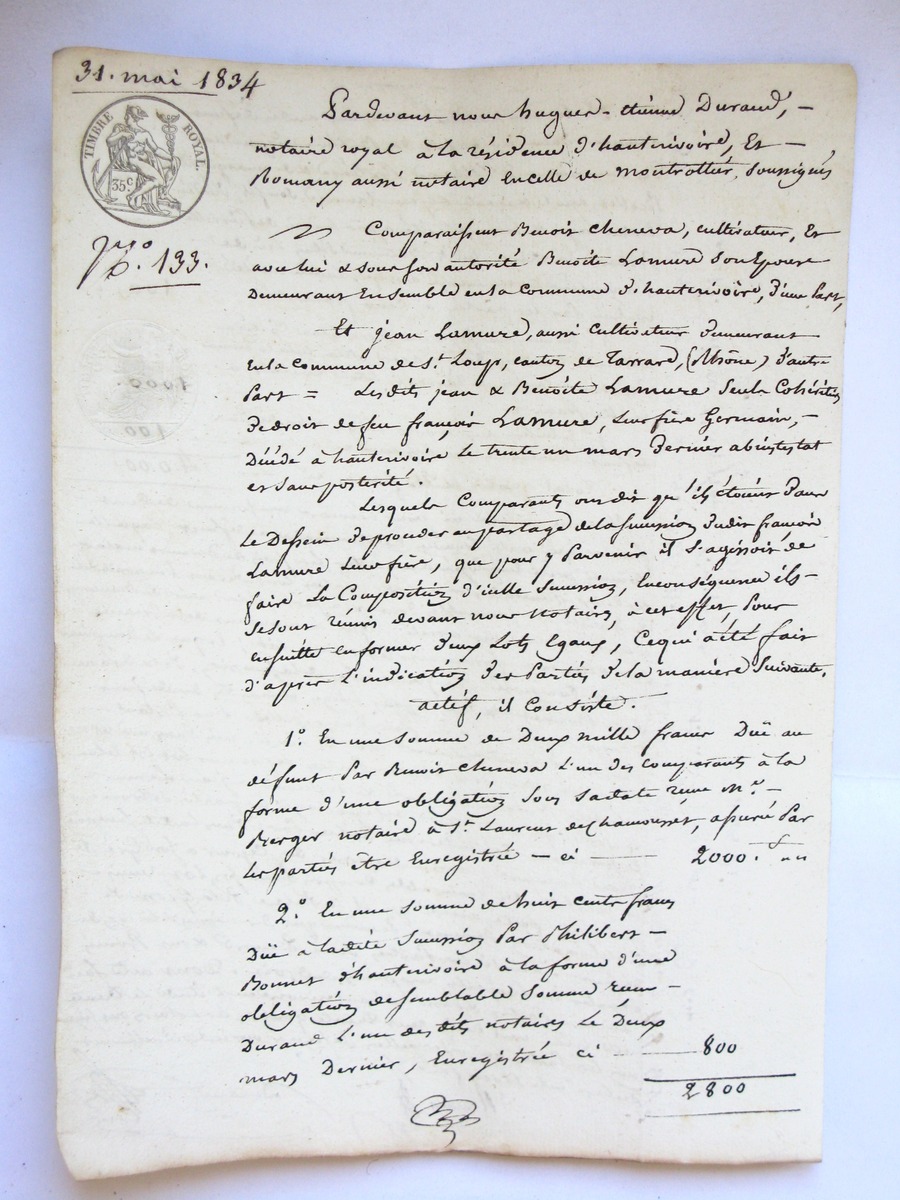 31. mai 1834
TIMBRE ROYAL.
35.c
N.o 133.
Pardevant nous hugues-étienne Durand, -
notaire royal à la résidence d'hauterivoire, Et -
Romany aussi notaire en celle de montrottier, soussignés
Comparaissent Benoit Cheneva, cultivateur, Et
avec lui & sous son autorité Benoîte Lamure son Epouse
Demeurant Ensemble en la Commune d'hauterivoire, d'une Part,
Et jean Lamure, aussi Cultivateur demeurant
en la commune de St. Loup, canton de Tarrare, (Rhône) d'autre
Part = Lesdits jean & Benoîte Lamure seuls Cohéritiers
de droit de feu françois Lamure, leur frère Germain, -
Décédé à hauterivoire le trente un mars dernier abintestat
et sans postérité.
Lesquels Comparants ont dit qu'ils étoient dans
Le Dessein de procéder au partage de la succession dudit françois
Lamure leur frère, que pour y Parvenir il s'agissoit de
faire La Composition d'icelle succession, En conséquence ils -
se sont réunis devant nous Notaires, à cet effet, Pour
ensuitte en former deux Lots Egaux, Ce qui a été fait
d'après L'indication des Parties de la manière suivante.
actif, il Consiste.
1.o En une somme de Deux mille francs Düe au
défunt Par Benoit Cheneva L'un des comparants à la
forme d'une obligation sous sa date reçue Me. -
Berger notaire à St. Laurent de Chamousset, assuré Par
Les parties être Enregistrée - ci - 2000. f
2.o En une somme de huit cents francs
Düe à ladite Succession Par Philibert -
Bonnet d'hauterivoire à la forme d'une
obligation de semblable somme reçue -
Durand L'un desdits notaires Le Deux
mars Dernier, Enregistrée ci - 800
2800